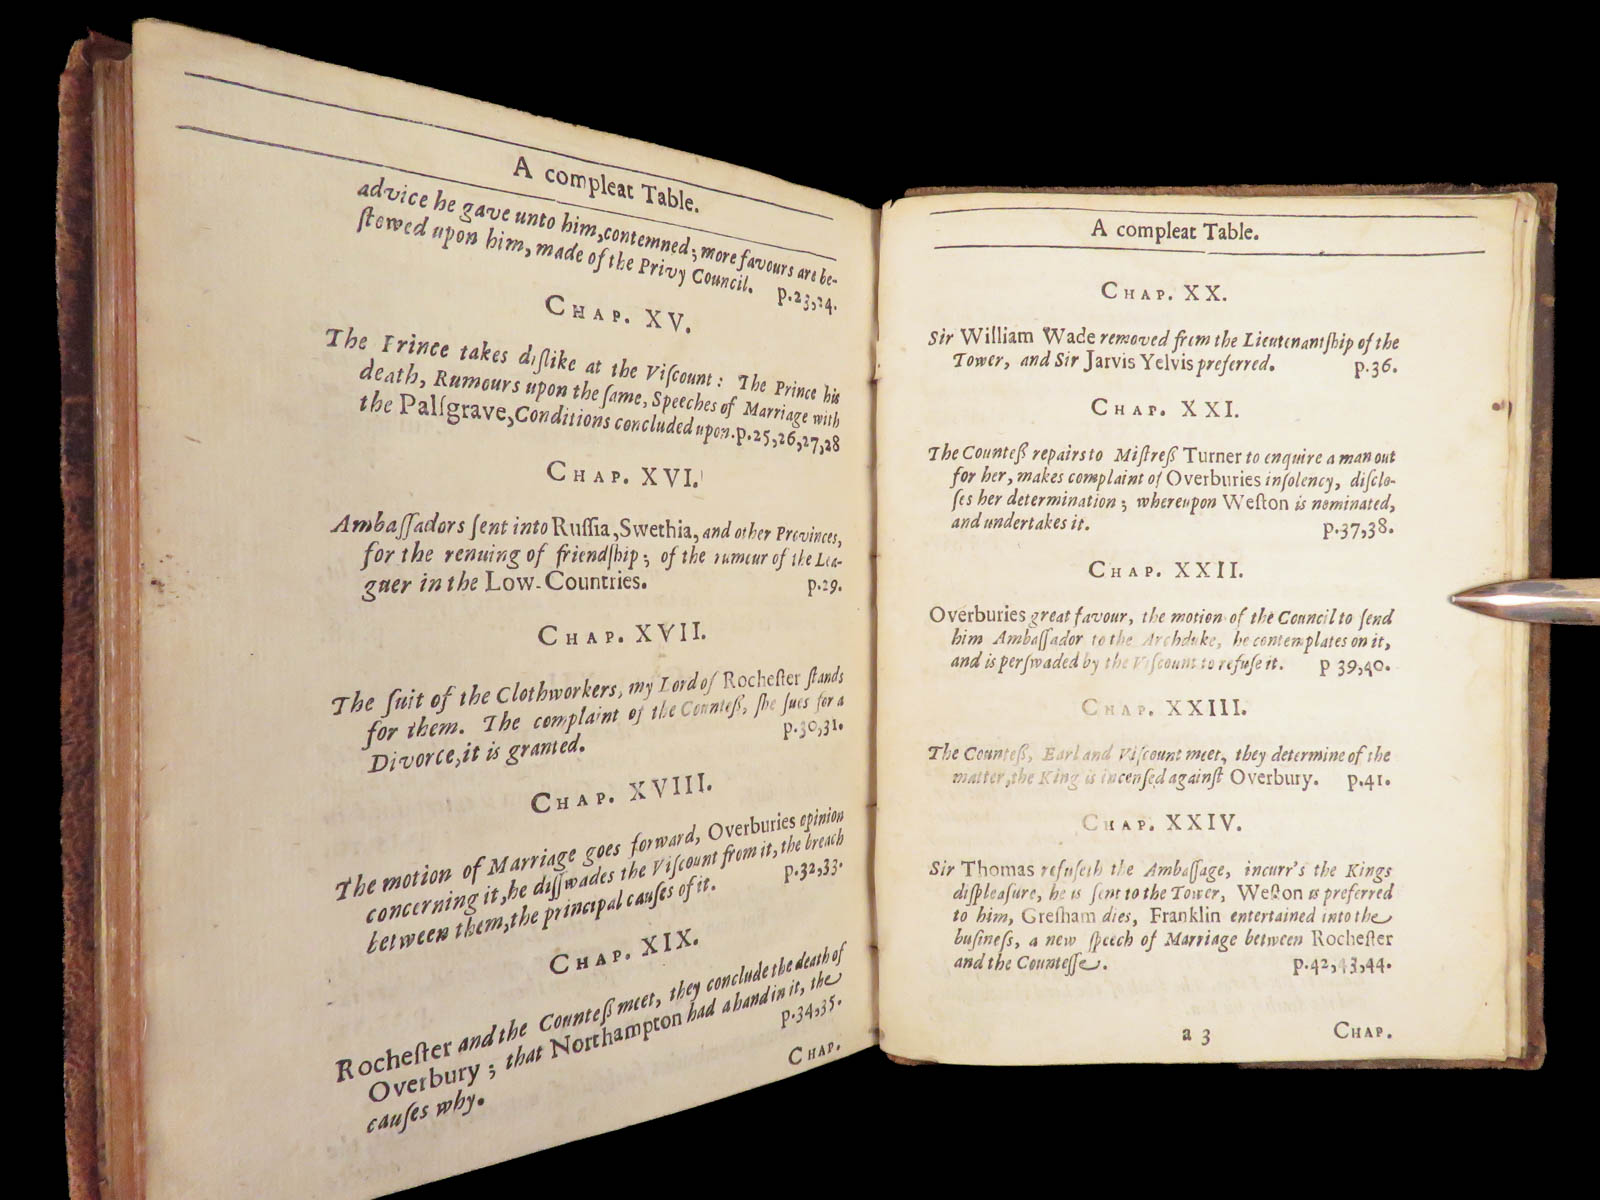 A compleat Table.
advice he gave unto him, contemned; more favours are be-
ſtowed upon him, made of the Privy Council. p.23,24.
CHAP. XV.
The Prince takes diſlike at the Viſcount: The Prince his
death, Rumours upon the ſame, Speeches of Marriage with
the Palſgrave, Conditions concluded upon. p.25,26,27,28
CHAP. XVI.
Ambaſſadors ſent into Ruſſia, Swethia, and other Provinces,
for the renuing of friendſhip; of the rumour of the Lea-
guer in the Low-Countries. p.29.
CHAP. XVII.
The ſuit of the Clothworkers, my Lord of Rocheſter ſtands
for them. The complaint of the Counteß, ſhe ſues for a
Divorce, it is granted. p.30,31.
CHAP. XVIII.
The motion of Marriage goes forward, Overburies opinion
concerning it, he diſſwades the Viſcount from it, the breach
between them, the principal cauſes of it. p.32,33.
CHAP. XIX.
Rocheſter and the Counteß meet, they conclude the death of
Overbury; that Northampton had a hand in it, the
cauſes why. p.34,35.
CHAP.
A compleat Table.
CHAP. XX.
Sir William Wade removed from the Lieutenantſhip of the
Tower, and Sir Jarvis Yelvis preferred. p.36.
CHAP. XXI.
The Counteß repairs to Miſtreß Turner to enquire a man out
for her, makes complaint of Overburies inſolency, diſclo-
ſes her determination; whereupon Weſton is nominated,
and undertakes it. p.37,38.
CHAP. XXII.
Overburies great favour, the motion of the Council to ſend
him Ambaſſador to the Archduke, he contemplates on it,
and is perſwaded by the Viſcount to refuſe it. p 39,40.
CHAP. XXIII.
The Counteß, Earl and Viſcount meet, they determine of the
matter, the King is incenſed againſt Overbury. p.41.
CHAP. XXIV.
Sir Thomas refuſeth the Ambaſſage, incurr's the Kings
diſpleaſure, he is ſent to the Tower, Weſton is preferred
to him, Greſham dies, Franklin entertained into the
buſineſs, a new ſpeech of Marriage between Rocheſter
and the Counteſſe. p.42,43,44.
a 3 CHAP.